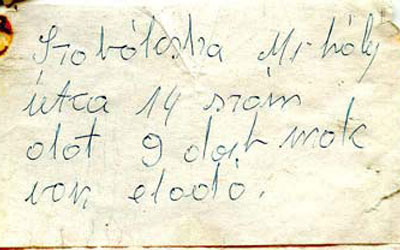 Szabólcska Mihály
útca 14 szám
alat 9 darab
van eladó.